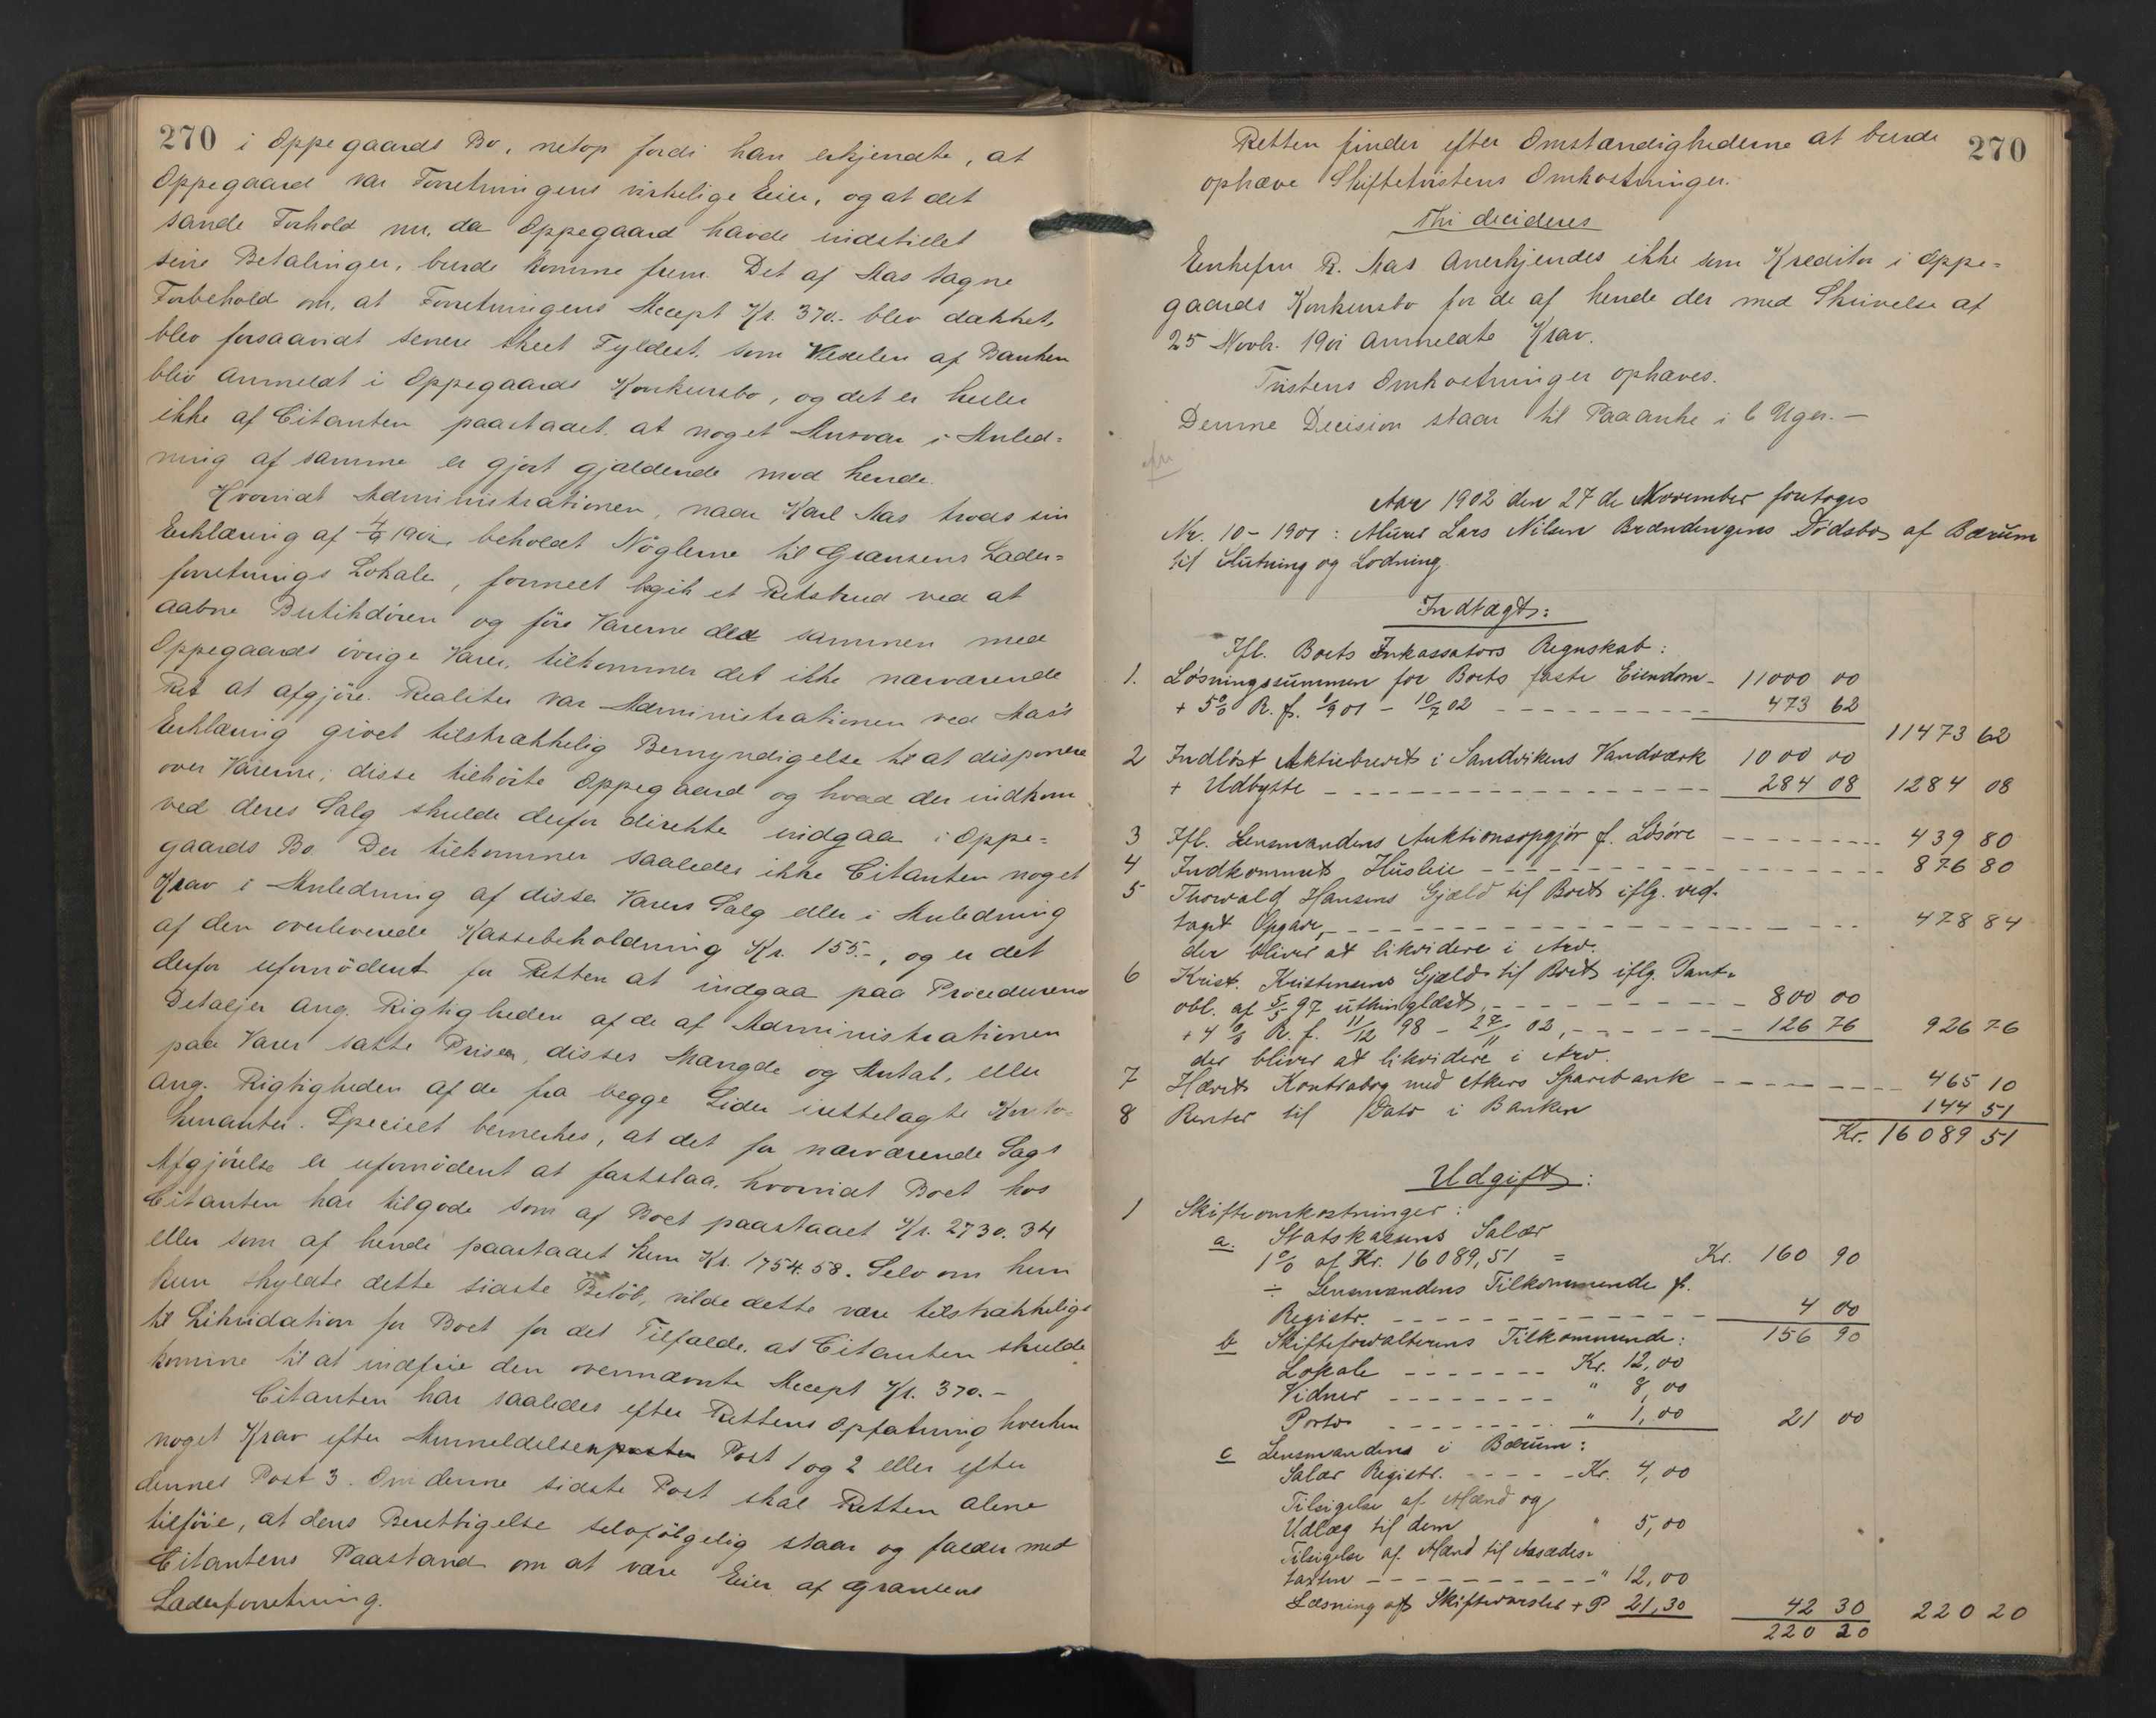 270 i Oppegaards Bo, netop fordi han erkjendte, at
Oppegaard var Forretningens virkelige Eier, og at det
sande Forhold nu, da Oppegaard havde indstillet
sine Betalinger, burde komme frem. Det af Aas tagne
Forbehold om, at Forretningens Accept Kr. 370.- blev dækket,
blev forsaavidt senere skeet Fyldest, som Vexelen af Banken
blev anmeldt i Oppegaards Konkursbo, og det er heller
ikke af Citanten paastaaet, at noget Ansvar i Anled-
ning af samme er gjort gjældende mod hende.
Hvorvidt Administrationen, naar Karl Aas trods sin
Erklæring af 4/9 1901 beholdt Nøglerne til Grænsens Læder-
forretnings Lokale, formelt begik et Retsbrud ved at
aabne Butikdøren og føre Varerne der sammen med
Oppegaards øvrige Varer, tilkommer det ikke nærværende
Ret at afgjøre. Realiter var Administrationen ved Aas's
Erklæring givet tilstrækkelig Bemyndigelse til at disponere
over Varerne; disse tilhørte Oppegaard og hvad der indkom
ved deres Salg skulde derfor direkte indgaa i Oppe-
gaards Bo. Der tilkommer saaledes ikke Citanten noget
Krav i Anledning af disse Varers Salg eller i Anledning
af den overleverede Kassebeholdning Kr. 155.-, og er det
derfor ufornødent for Retten at indgaa paa Procedurens
Detaljer ang. Rigtigheden af de af Administrationen
paa Varer satte Priser, disses Mængde og Antal, eller
ang. Rigtigheden af de fra begge Sider irettelagte Konto-
kuranter. Specielt bemerkes, at det for nærværende Sags
Afgjørelse er ufornødent at fastslaa, hvorvidt Boet hos
Citanten har tilgode som af Boet paastaaet Kr. 2730.34
eller som af hende paastaaet kun Kr. 1754.58. Selv om hun
kun skyldte dette sidste Beløb, vilde dette være tilstrækkeligt
til Likvidation for Boet for det Tilfælde, at Citanten skulde
komme til at indfrie den ovennævnte Accept Kr. 370.-
Citanten har saaledes efter Rettens Opfatning hverken
noget Krav efter Anmeldelsens Post 1 og 2 eller efter
dennes Post 3. Om denne sidste Post skal Retten alene
tilføie, at dens Berettigelse selvfølgelig staar og falder med
Citantens Paastand om at være Eier af Grænsens
Læderforretning.
Retten finder efter Omstændighederne at burde 270
ophæve Skiftetvistens Omkostninger.
Thi decideres
Enkefru R. Aas anerkjendes ikke som Kreditor i Oppe-
gaards Konkursbo for de af hende der med Skrivelse af
25 Novbr. 1901 anmeldte Krav.
Tvistens Omkostninger ophæves.
Denne Decision staar til Paaanke i 6 Uger. -
Aar 1902 den 27de November foretoges
Nr. 10 - 1901: Murer Lars Nilsen Brændengens Dødsbo af Bærum
til Slutning og Lodning.
Indtægt:
Ifl. Boets Inkassators Regnskab:
1. Løsningssummen for Boets faste Eiendom - 11000 00
+ 5% R. f. 1/9 01 - 10/7 02 - 473 62
11473 62
2 Indløst Aktiebrevet i Sandvikens Vandværk 1000 00
+ Udbytte - 284 08 1284 08
3 Ifl. Lensmandens Auktionsopgjør f. Løsøre - 439 80
4 Indkommet Husleie - 876 80
5 Thorvald Hansens Gjæld til Boet iflg. ved-
taget Opgave - 478 84
der bliver at likvidere i Arv.
6 Krist. Kristensens Gjæld til Boet iflg. Pant-
obl. af 5/5 97 uthinglæst, - 800 00
+ 4% R. f. 11/12 98 - 27/11 02, - 126 76 926 76
der bliver at likvidere i Arv.
7 Hævet Kontrabog med Akers Sparebank - 465 10
8 Renter til Dato i Banken 144 51
Kr. 16089 51
Udgift:
1 Skifteomkostninger:
a. Statskassens Salær
1% af Kr. 16089,51 = Kr. 160 90
÷ Lensmandens Tilkommende f.
Registr. - 4 00
b Skifteforvalterens Tilkommende: 156 90
Lokale - Kr. 12,00
Vidner - " 8,00
Porto - " 1,00 21 00
c Lensmandens i Bærum:
Salær Registr. - Kr. 4,00
Tilsigelse af Mænd og
Udlæg til dem " 5,00
Tilsigelse af Mænd til Aasædes-
taxten - " 12,00
Læsning af Skiftevarslet + P 21,30 42 30 220 20
220 20